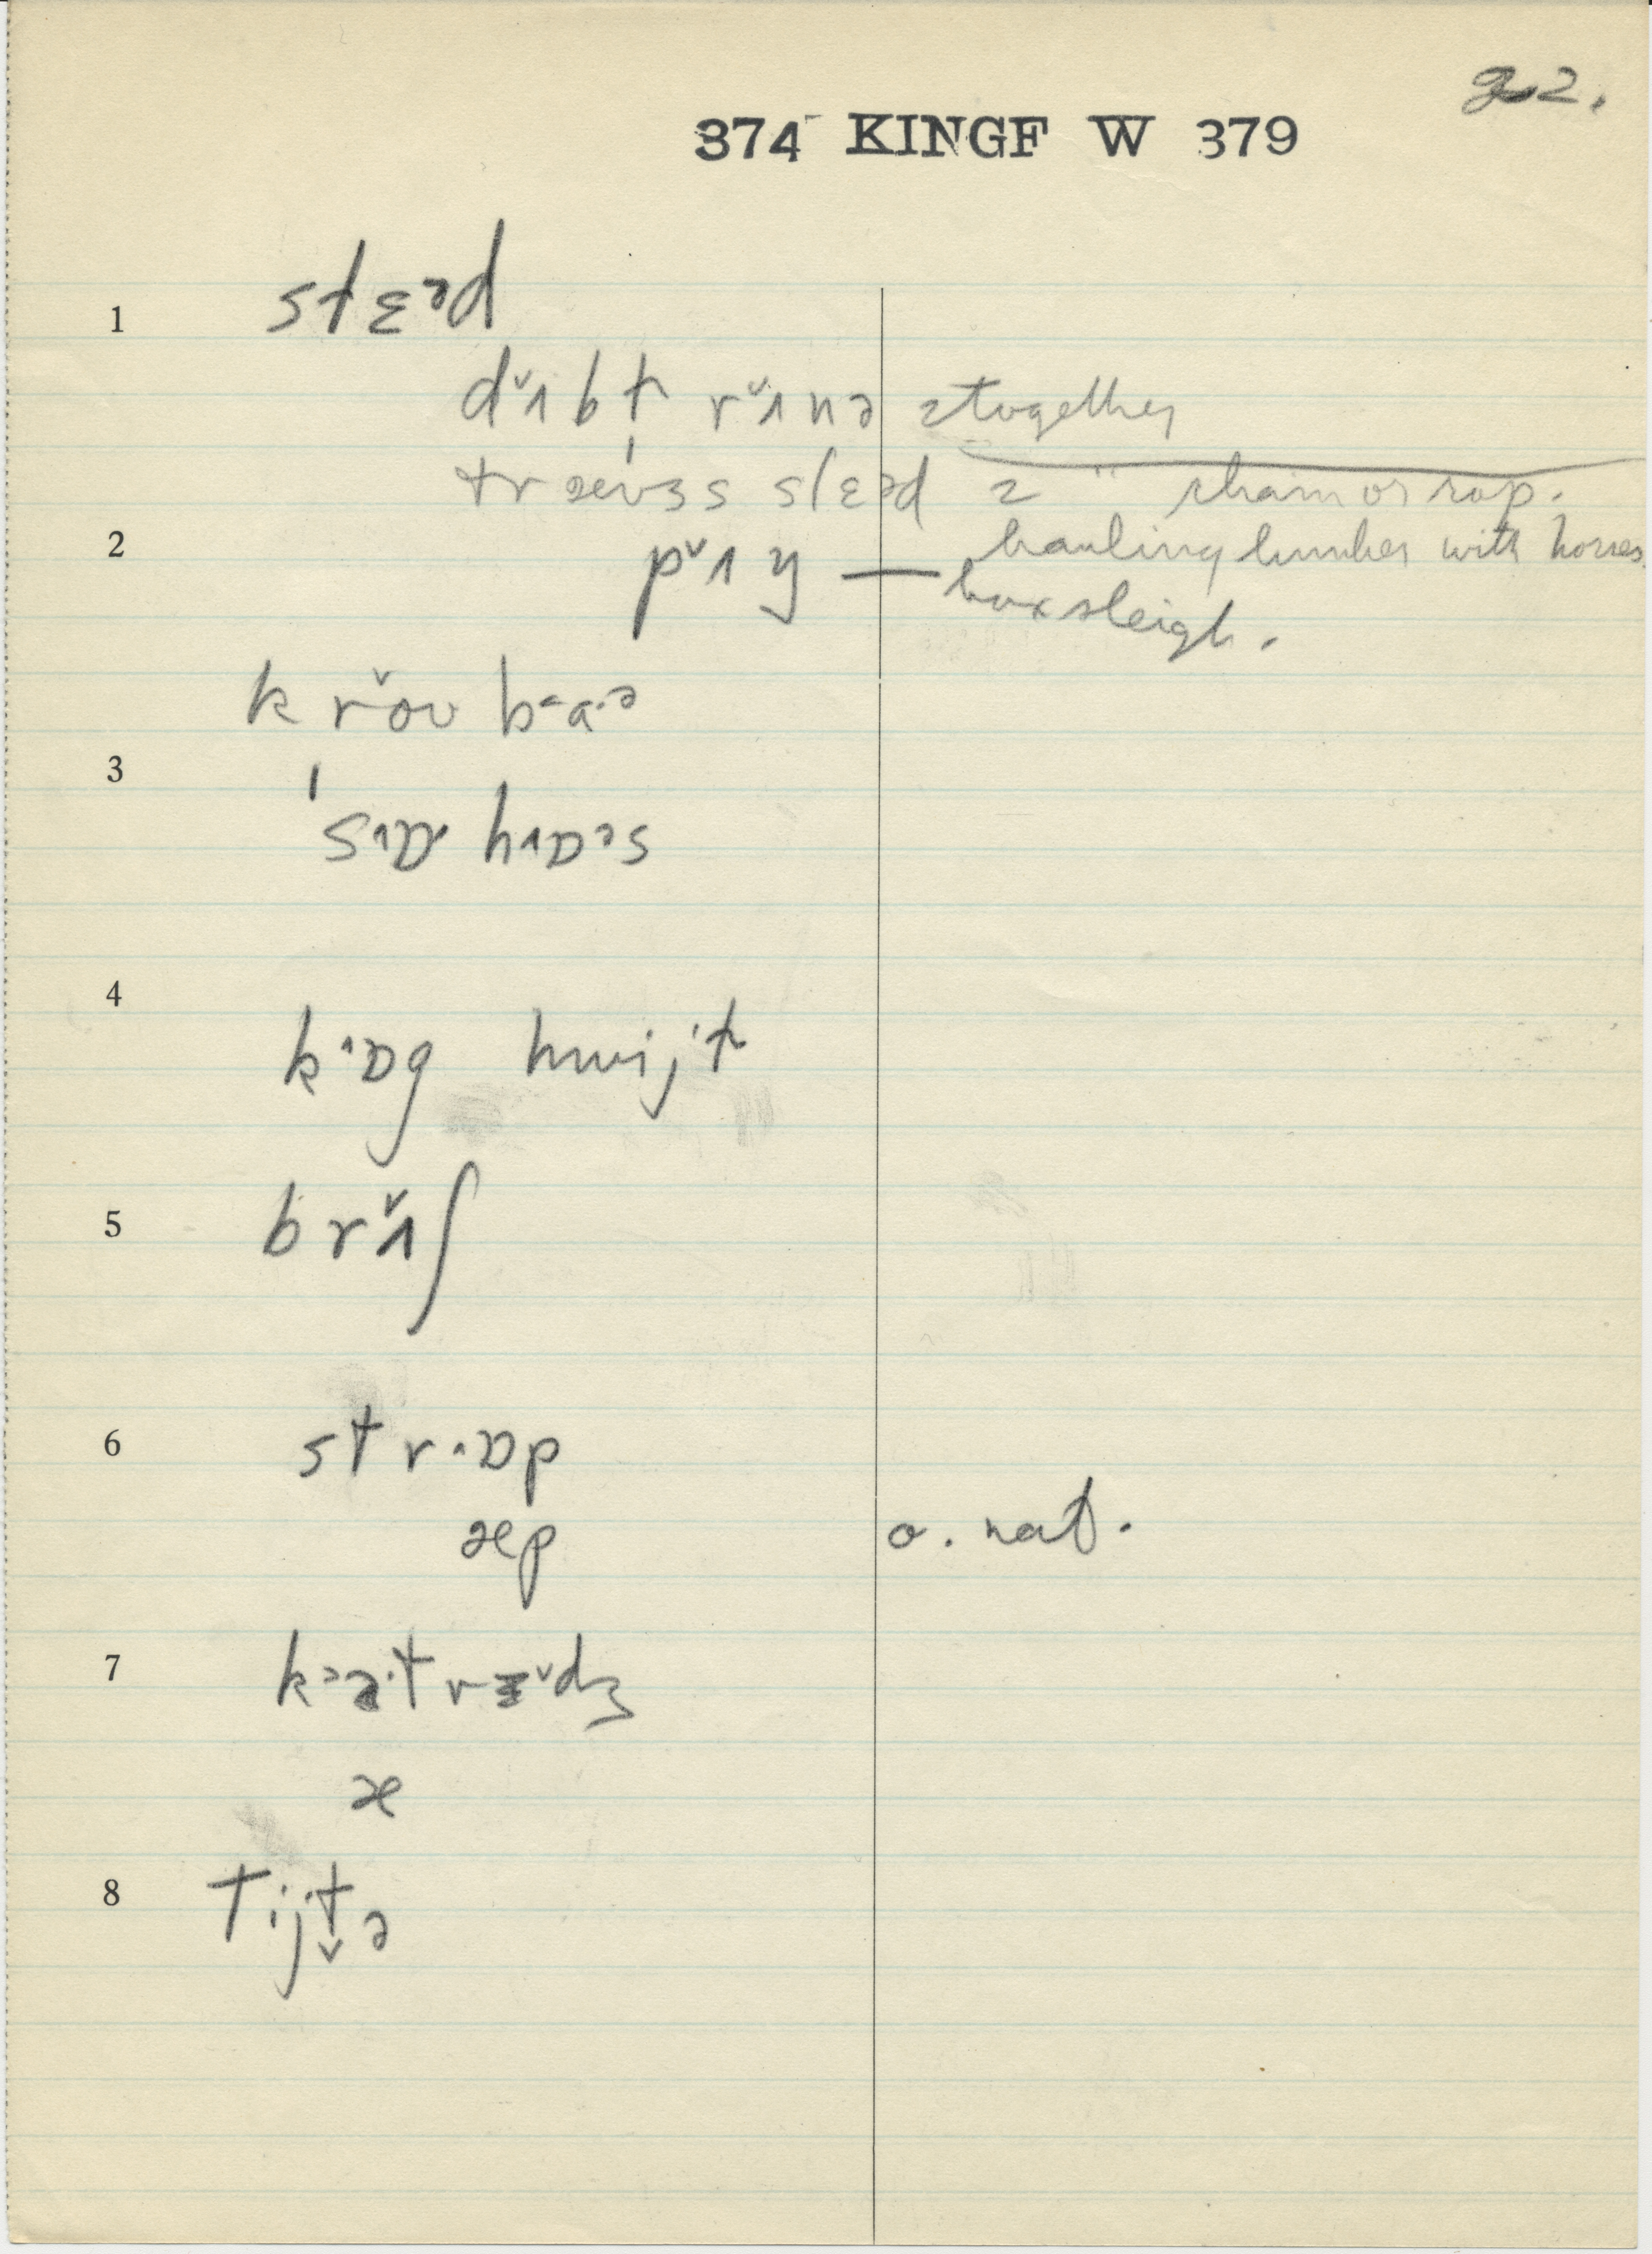 22.
374 KINGF W 379
1 stɛᵊd
dᵛʌbɫ rᵛʌnə 2 together
trævɜs slɛəd 2 " chain or rop.
2 pᵛʌŋ — hauling lumber with horses
box sleigh.
k rᵛoʊ bᵃa·ᵊ
3 ˈsᶦɒ hᶦɒᵊs
4 kᶦɒg hwijt
5 brᵛʌʃ
6 str·ɒp
æp o. nat.
7 kᵊa·trɪᵛdʒ
æ
8 tijt̬ə